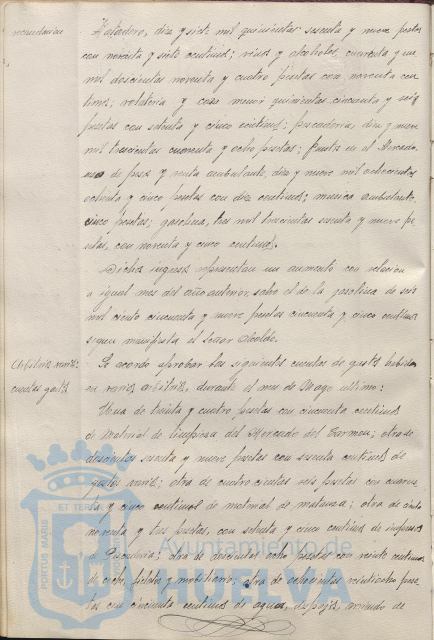 recaudación
Matadero, diez y siete mil quinientas sesenta y nueve pesetas
con noventa y siete centimos; vinos y alcoholes, cuarenta y un
mil doscientas noventa y cuatro pesetas con noventa cen-
timos; voletería y caza menor quinientas cincuenta y seis
pesetas con setenta y cinco centimos; pescadería, diez y nueve
mil trescientas cuarenta y ocho pesetas; frutas en el Mercado,
de pesas y venta ambulante, diez y nueve mil ochocientas
ochenta y cinco pesetas con diez centimos; musica ambulante,
cinco pesetas; gasolina, tres mil trescientas sesenta y nueve pe-
setas, con noventa y cinco centimos.
Dichos ingresos representan un aumento con relación
a igual mes del año anterior, sobre el de la gasolina de seis
mil ciento cincuenta y nueve pesetas cincuenta y cinco centimos
segun manifiesta el señor Alcalde.
Arbitrios varios:
cuentas gastos
Se acordó aprobar las siguientes cuentas de gastos habidos
en varios arbitrios, durante el mes de Mayo ultimo:
Una de treinta y cuatro pesetas con cincuenta centimos
de Material de limpieza del Mercado del Carmen; otra de
doscientas sesenta y nueve pesetas con sesenta centimos de
gastos varios; otra de cuatrocientas seis pesetas con cuaren-
ta y cinco centimos de material de matanza; otra de ciento
noventa y tres pesetas, con setenta y cinco centimos de impresos
de Pescadería; otra de doscientas ocho pesetas con veinte centimos
de y mobiliario; otra de ochocientas veinticinco pese-
tas con cincuenta centimos de aguas, despojos, arriendo de
PORTUS MARIS ET TERRAE
Ayuntamiento de
HUELVA